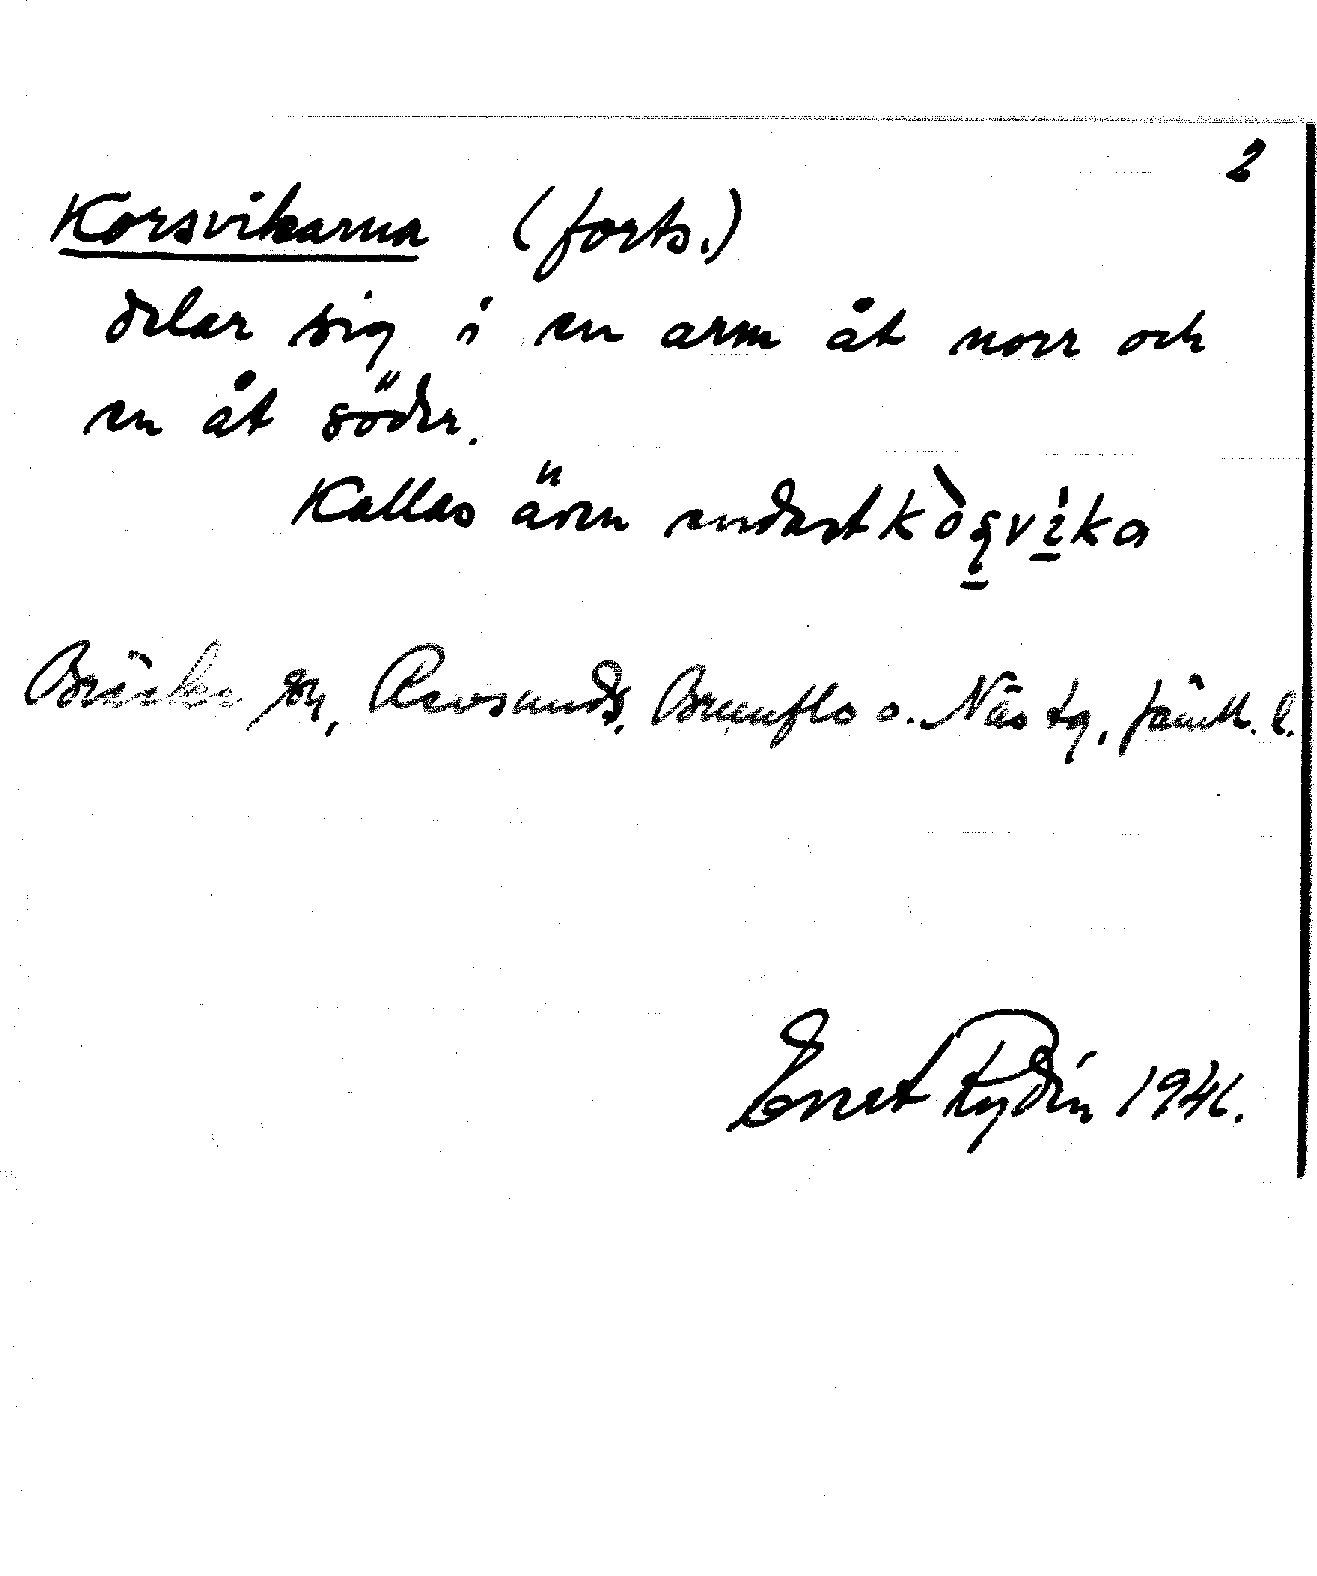 2
Korsvikarna (forts.)
delar sig i en arm åt norr och
en åt söder.
Kallas även endast
Bräcke sn, Revsunds, Brunflo o. Näs tg, Jämtl. l.
Ernst Rydin 1941.